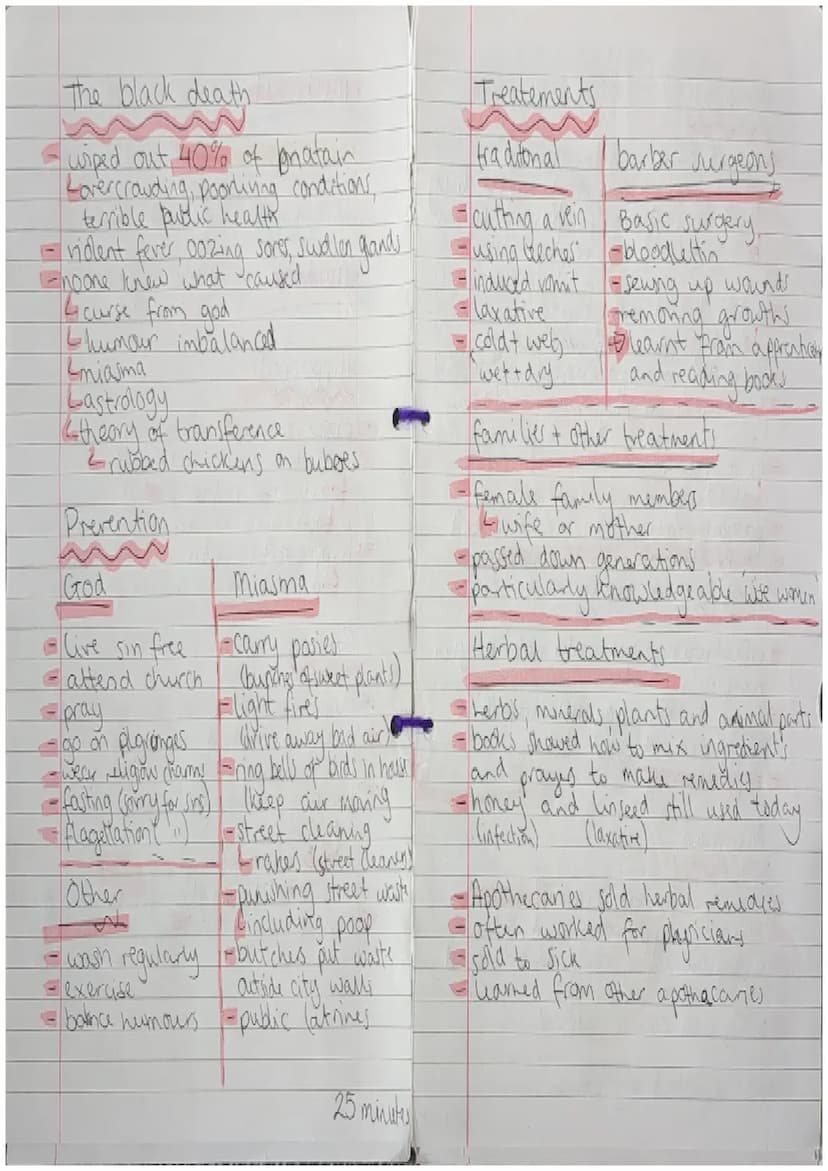 The black death
- wiped out 40% of bnatain
overcrowding, poorliving conditions,
terrible public health
- violent fever, oozing sores, swollen gands
- noone knew what caused
curse from god
humour imbalanced
miasma
astrology
theory of transference
rubbed chickens on buboes
Prevention
God
- live sin free
- attend church
- pray
- go on
- wear charms
- fasting (sorry for sins)
- flagellation ( " )
Other
- wash regularly
- exercise
- balnce humours
Miasma
- carry posies
(bunches of sweet plants)
- light fires
(drive away bad air)
- ring bells or birds in house
(keep air moving
- street cleaning
rakes (street cleaners)
- punishing street waste
including poop
- butchers put waste
outside city walls
- public latrines
25 minutes
Treatements
traditonal
- cutting a vein
- using leeches
- induced vomit
- laxative
- cold + wet,
wet + dry
barber surgeons
Basic surgery
- bloodlettin
- sewing up wounds
- removing growths
learnt from
and reading books
families + other treatments
- female family members
wife or mother
- passed down generations
- particularly knowledgeable wise women
Herbal treatments
- herbs, minerals, plants and animal parts
- books showed how to mix ingredients
and prayes to make remedies
- honey and linseed still used today
(infection) (laxative)
- Apothecaries sold herbal remedies
- often worked for physicians
- sold to sick
- learned from other apothacaries